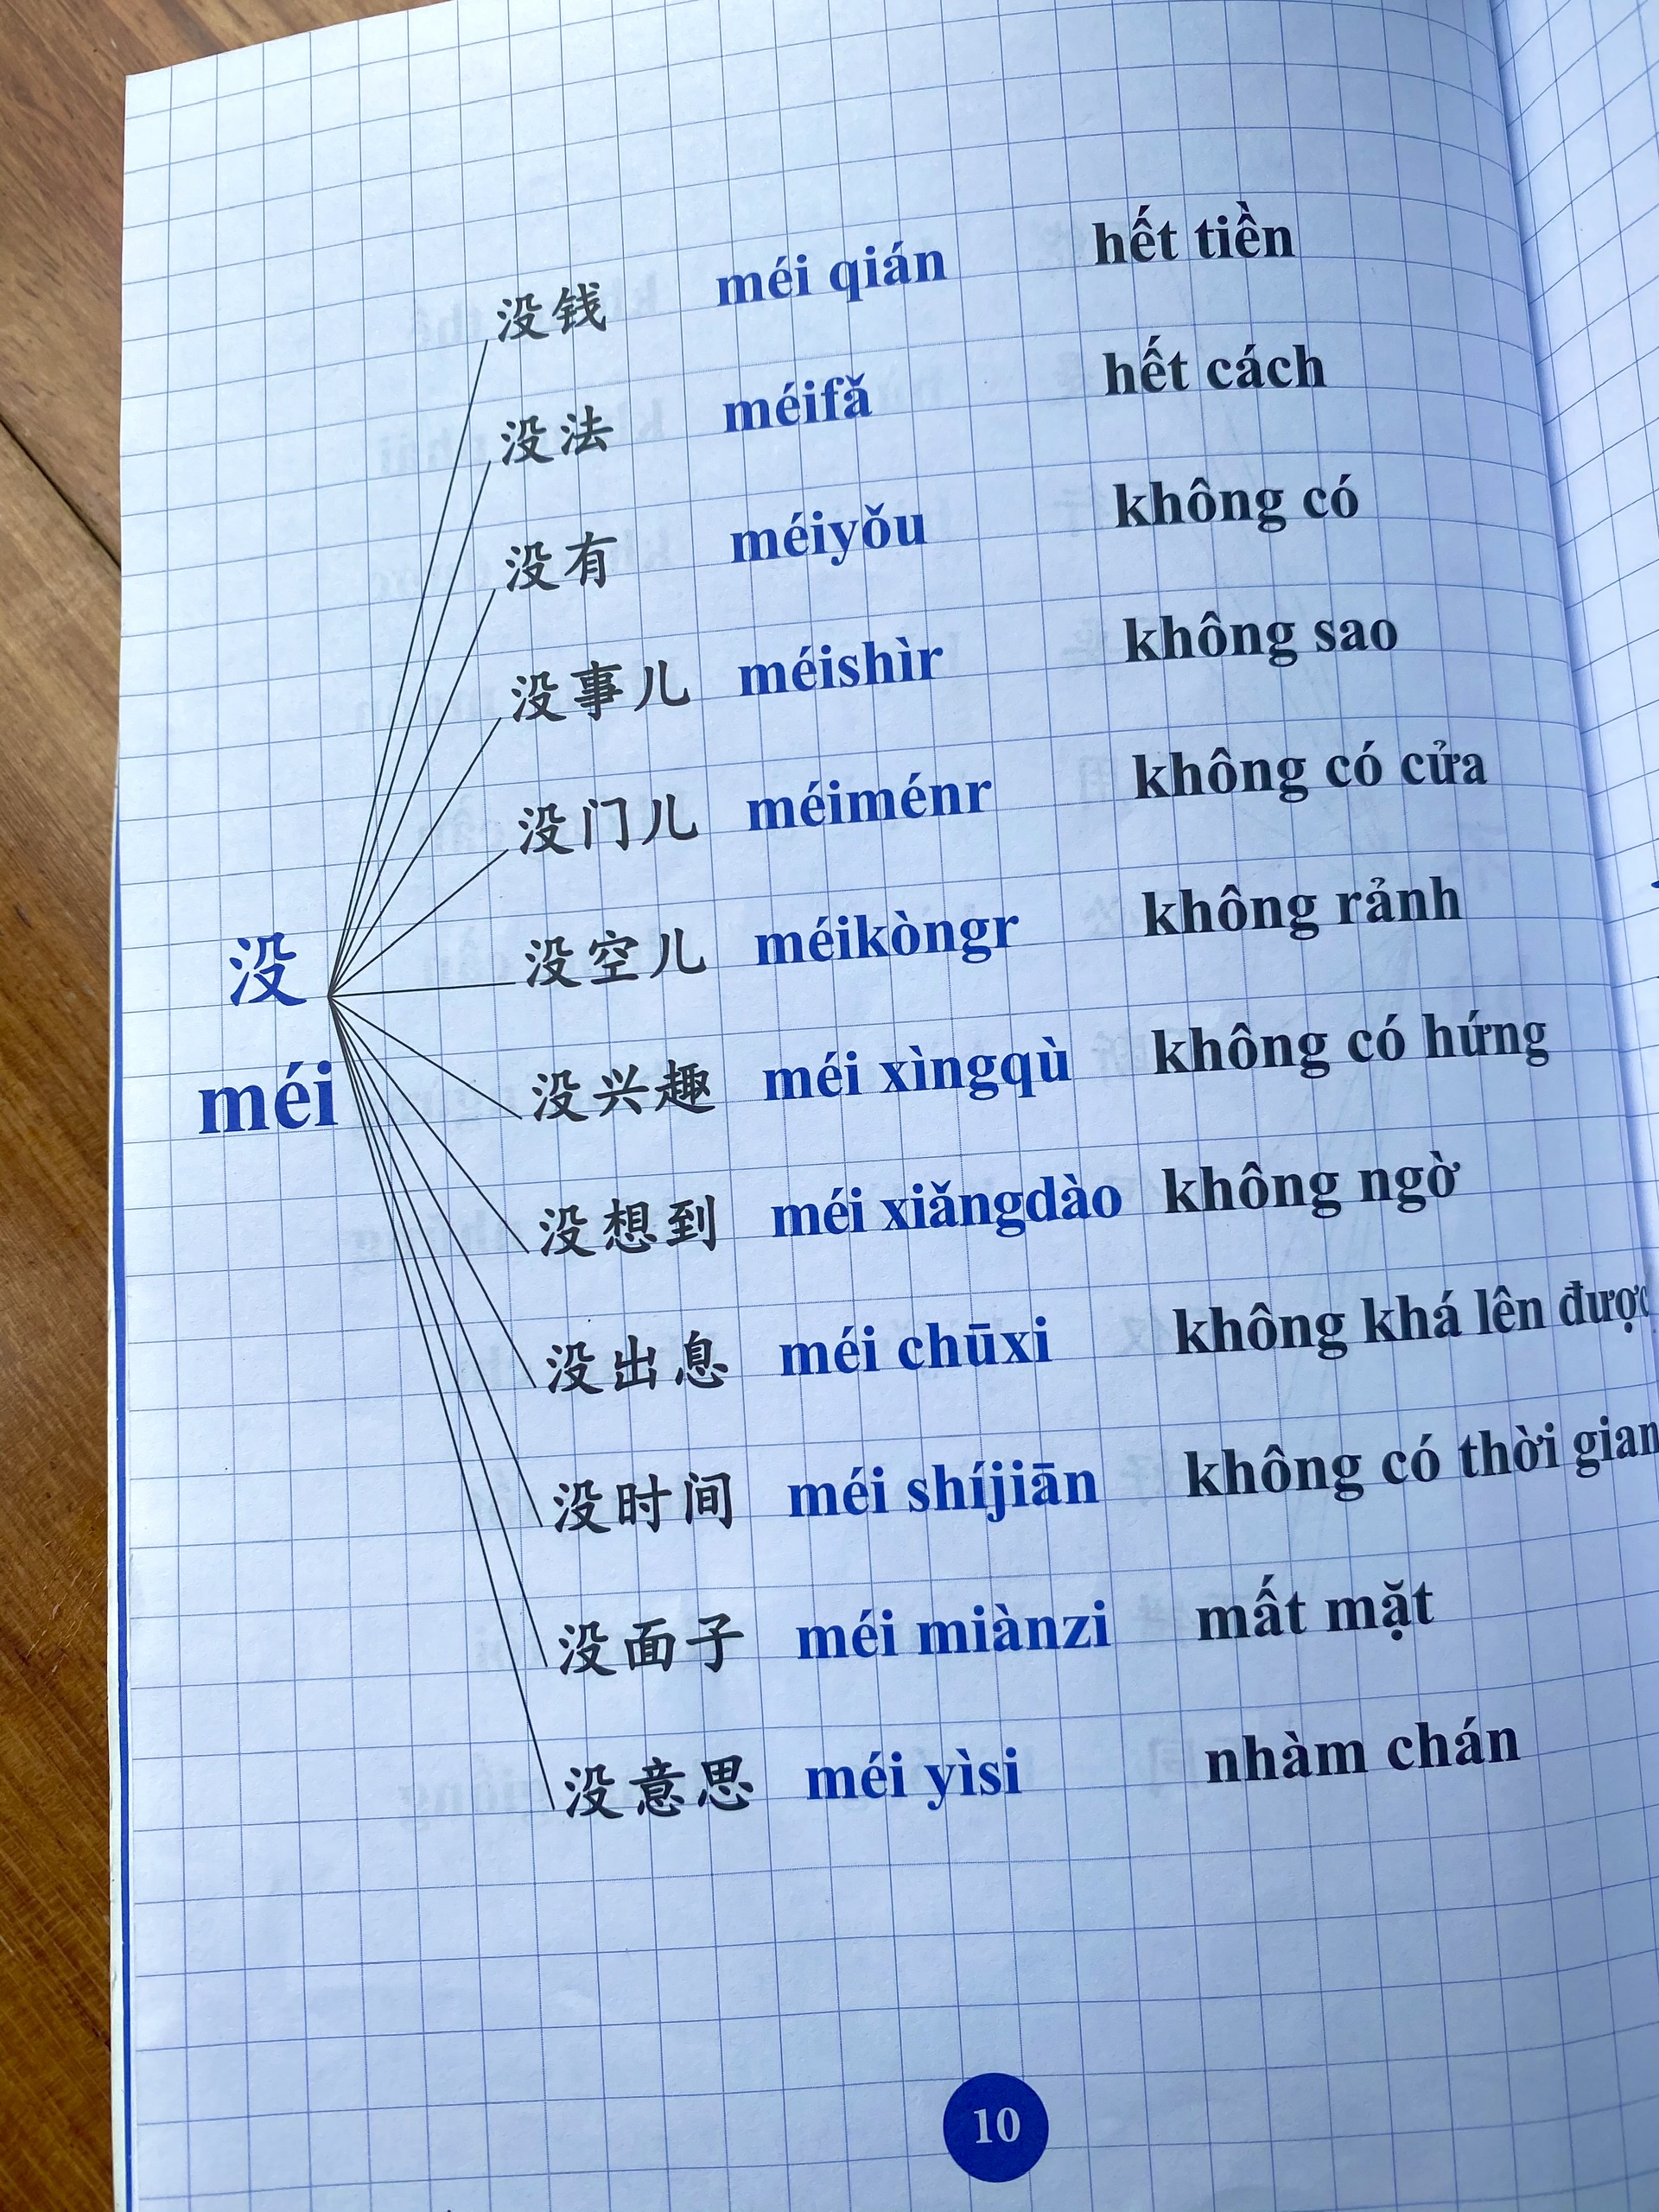 没钱 méi qián hết tiền
没法 méifǎ hết cách
没有 méiyǒu không có
没事儿 méishìr không sao
没门儿 méiménr không có cửa
没空儿 méikòngr không rảnh
没
méi
没兴趣 méi xìngqù không có hứng
没想到 méi xiǎngdào không ngờ
没出息 méi chūxi không khá lên được
没时间 méi shíjiān không có thời gian
没面子 méi miànzi mất mặt
没意思 méi yìsi nhàm chán
10